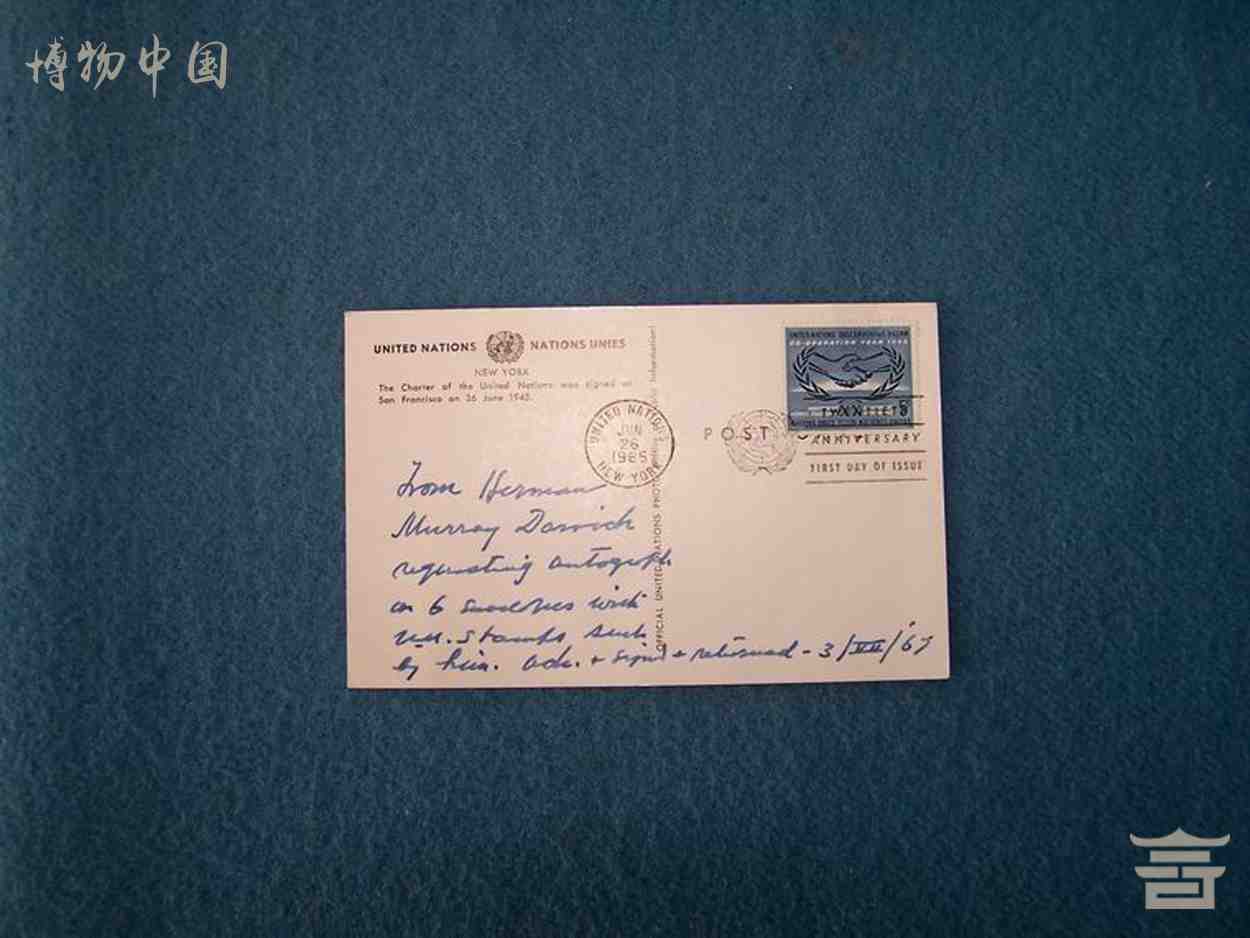 博物中国
UNITED NATIONS NATIONS UNIES
NEW YORK
The Charter of the United Nations was signed in
San Francisco on 26 June 1945.
UNITED NATIONS
JUN
26
1965
NEW YORK
POST
CO-OPERATION YEAR 1965
5¢
TWENTIETH
ANNIVERSARY
FIRST DAY OF ISSUE
OFFICIAL UNITED NATIONS
From Herman
Murray Darvick
requesting autograph
on 6 envelopes with
U.N. stamps sent
by him. Ack. + signed + returned - 3/VII/'67